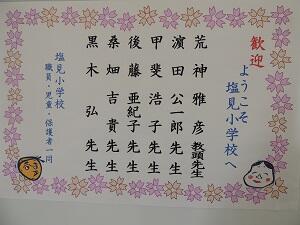 歓迎
ようこそ
塩見小学校へ
荒神雅彦教頭先生
濵田公一郎先生
甲斐浩子先生
後藤亜紀子先生
桑畑吉貴先生
黒木弘先生
塩見小学校
職員・児童・保護者一同